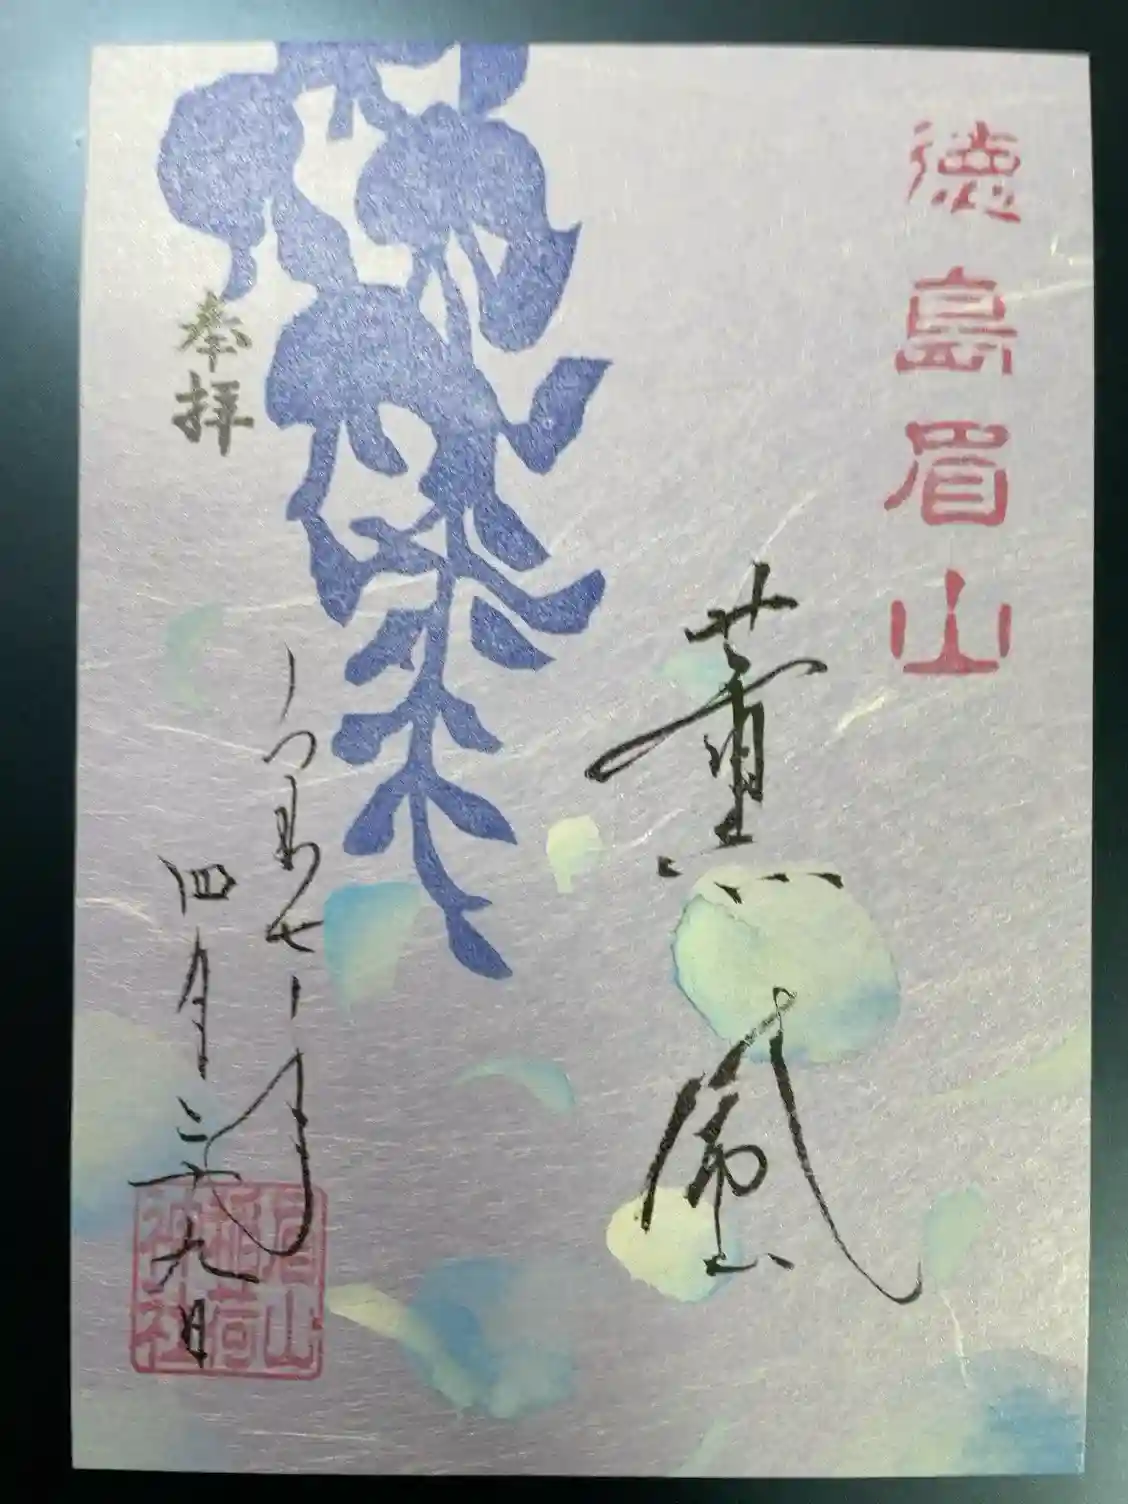 徳島眉山
薫風
奉拝
四月二十九日
眉山
稲荷
神社